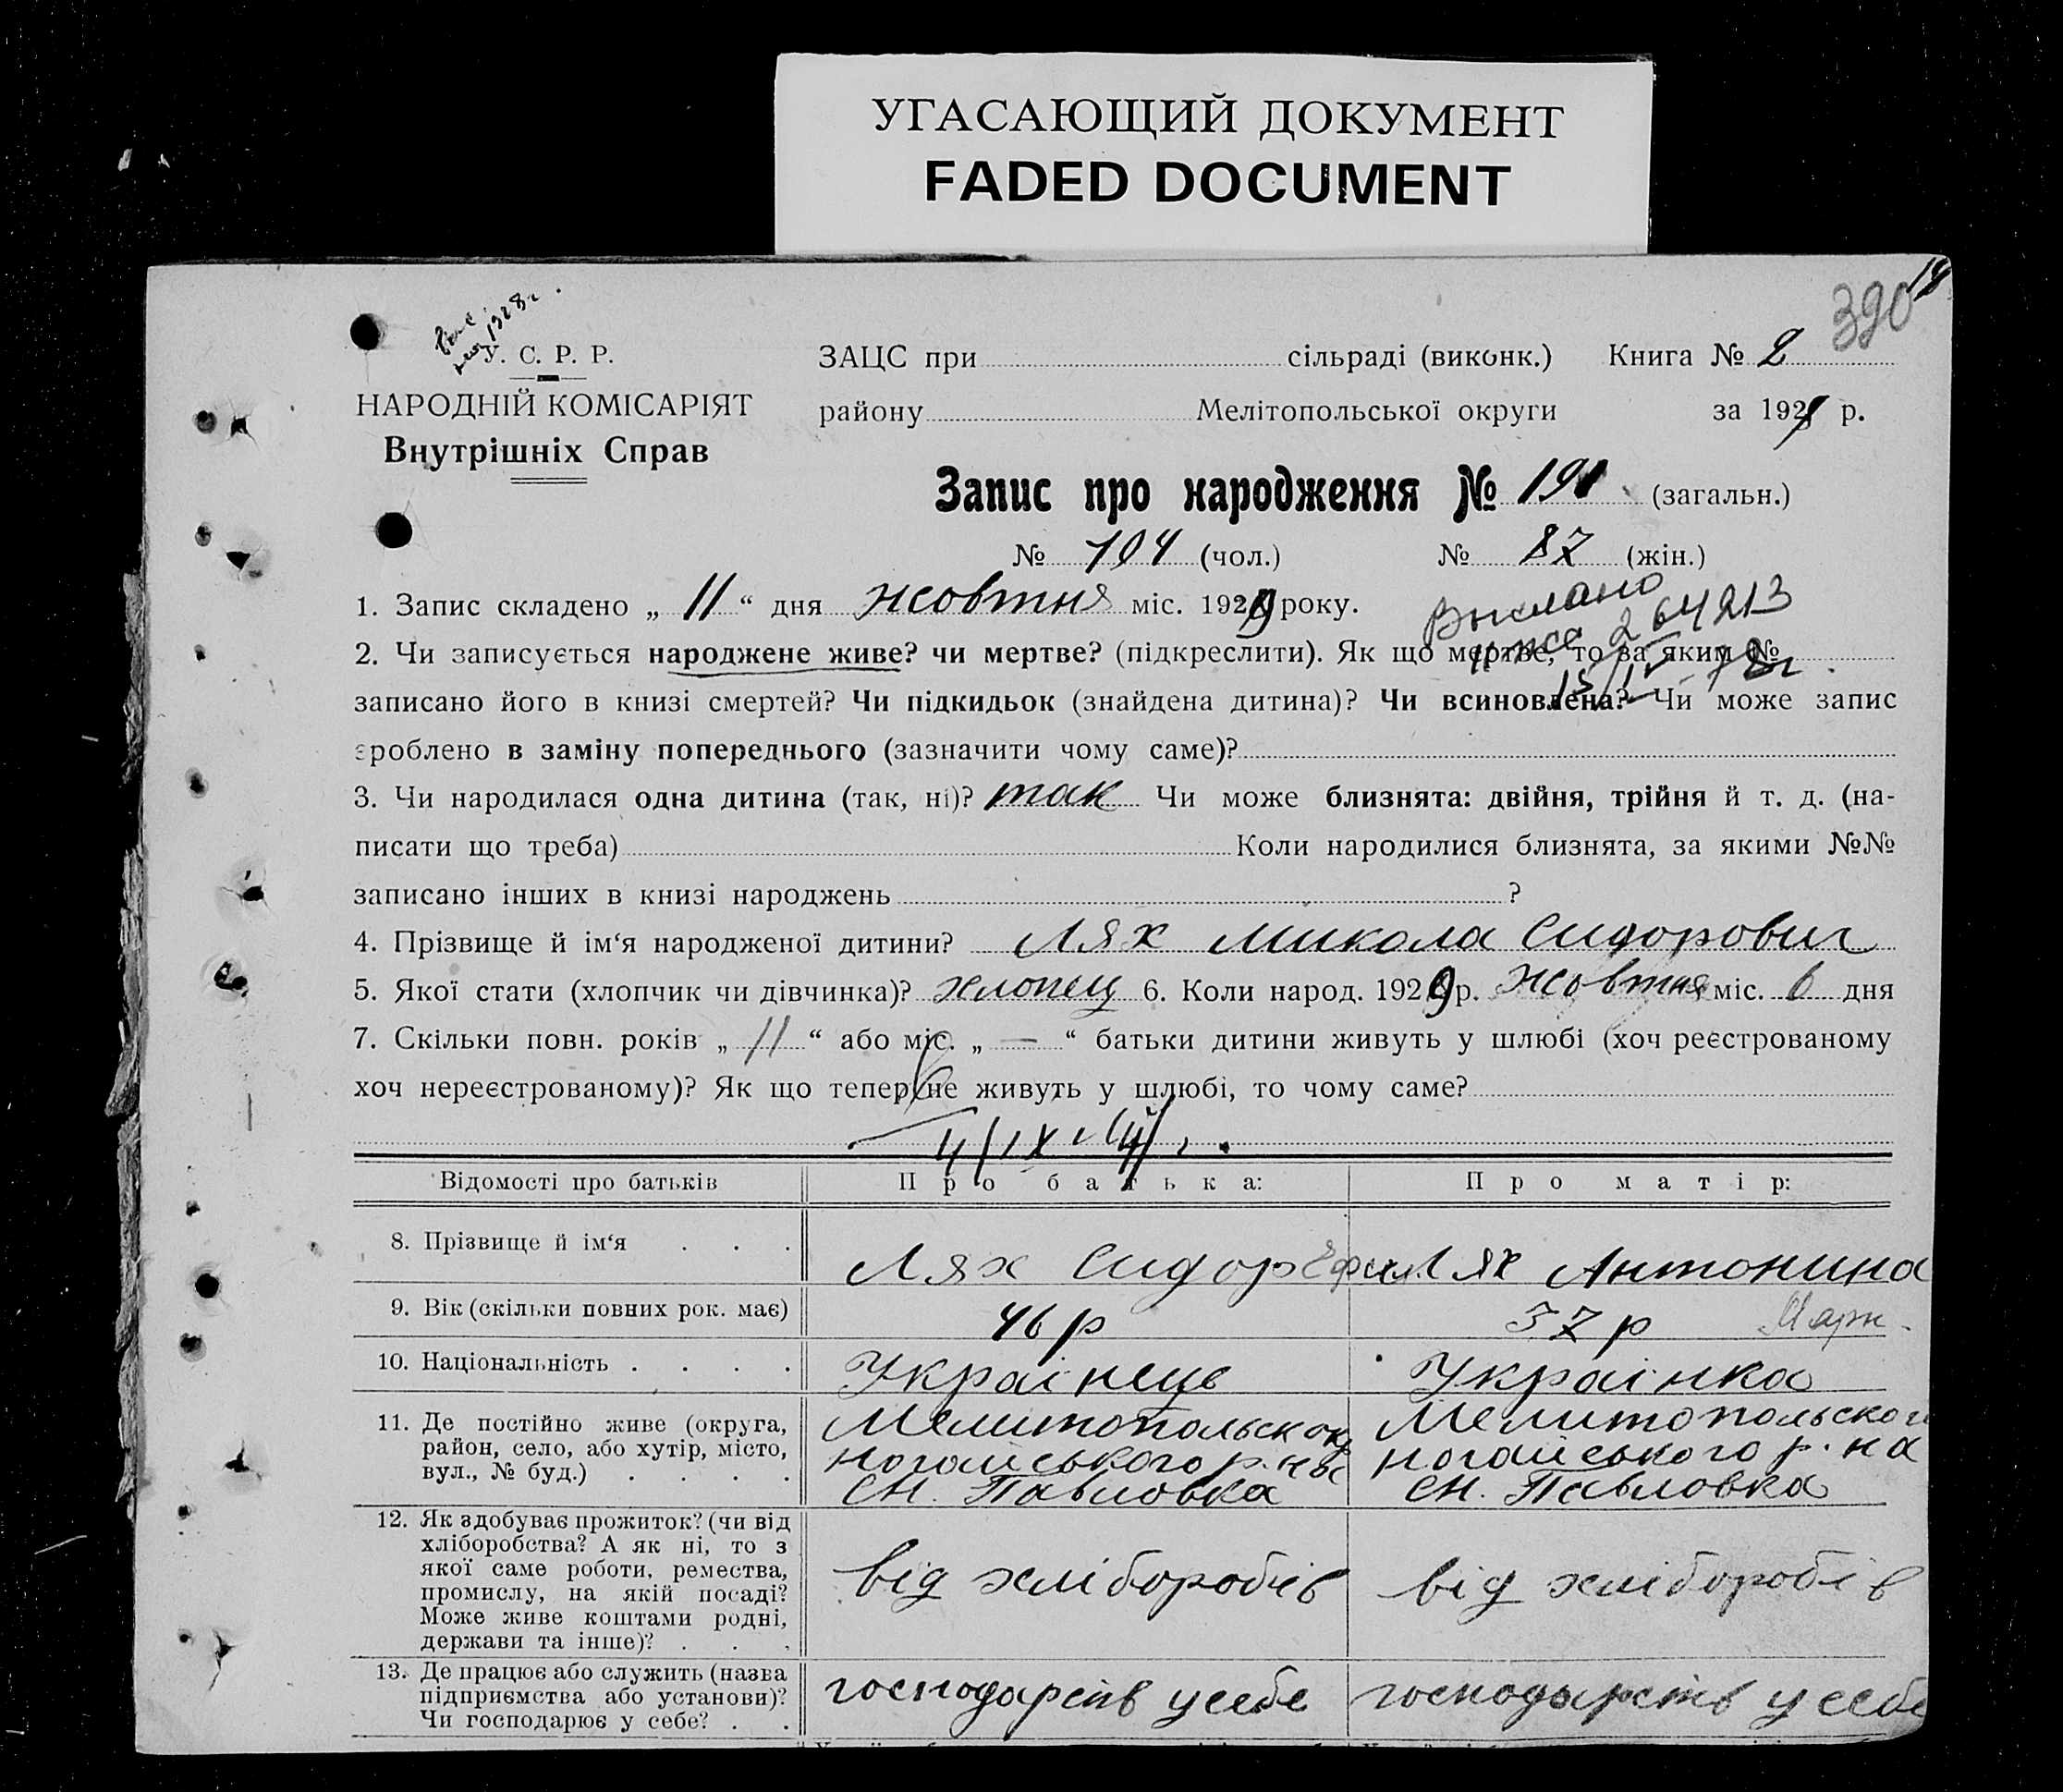 УГАСАЮЩИЙ ДОКУМЕНТ
FADED DOCUMENT
390
1928 г.
У. С. Р. Р.
НАРОДНІЙ КОМІСАРІЯТ
Внутрішніх Справ
ЗАЦС при сільраді (виконк.) Книга № 2
району Мелітопольської округи за 192 р.
Запис про народження № 191 (загальн.)
№ 104 (чол.) № 87 (жін.)
1. Запис складено „ 11 “ дня жовтня міс. 1929 року.
Выслано
264213
2. Чи записується народжене живе? чи мертве? (підкреслити). Як що мертве, то за яким №
записано його в книзі смертей? Чи підкидьок (знайдена дитина)? Чи всиновлена? Чи може запис
зроблено в заміну попереднього (зазначити чому саме)?
3. Чи народилася одна дитина (так, ні)? так Чи може близнята: двійня, трійня й т. д. (на-
писати що треба) Коли народилися близнята, за якими №№
записано інших в книзі народжень ?
4. Прізвище й ім‘я народженої дитини? Лях Микола Сидорович
5. Якої стати (хлопчик чи дівчинка)? хлопец 6. Коли народ. 1929 р. Жовтня міс. 6 дня
7. Скільки повн. років „ 11 “ або міс. „ — “ батьки дитини живуть у шлюбі (хоч реєстрованому
хоч нереєстрованому)? Як що тепер не живуть у шлюбі, то чому саме?
Відомості про батьків Про батька: Про матір:
8. Прізвище й ім‘я . . . Лях Сидор Лях Антонина
9. Вік (скільки повних рок. має) 46 р 37 р
10. Національність . . . . Українець Українка
11. Де постійно живе (округа, район, село, або хутір, місто, вул., № буд.) . . . .
Мелитопольск ок
ногайського р.
сн. Павловка
Мелитопольског
ногайського р. на
сн. Павловка
12. Як здобуває прожиток? (чи від
хліборобства? А як ні, то з
якої саме роботи, ремества,
промислу, на якій посаді?
Може живе коштами родні,
держави та інше)? . . .
від хліборобів від хліборобів
13. Де працює або служить (назва
підприємства або установи)?
Чи господарює у себе? . .
господарств у себе господарств у себе